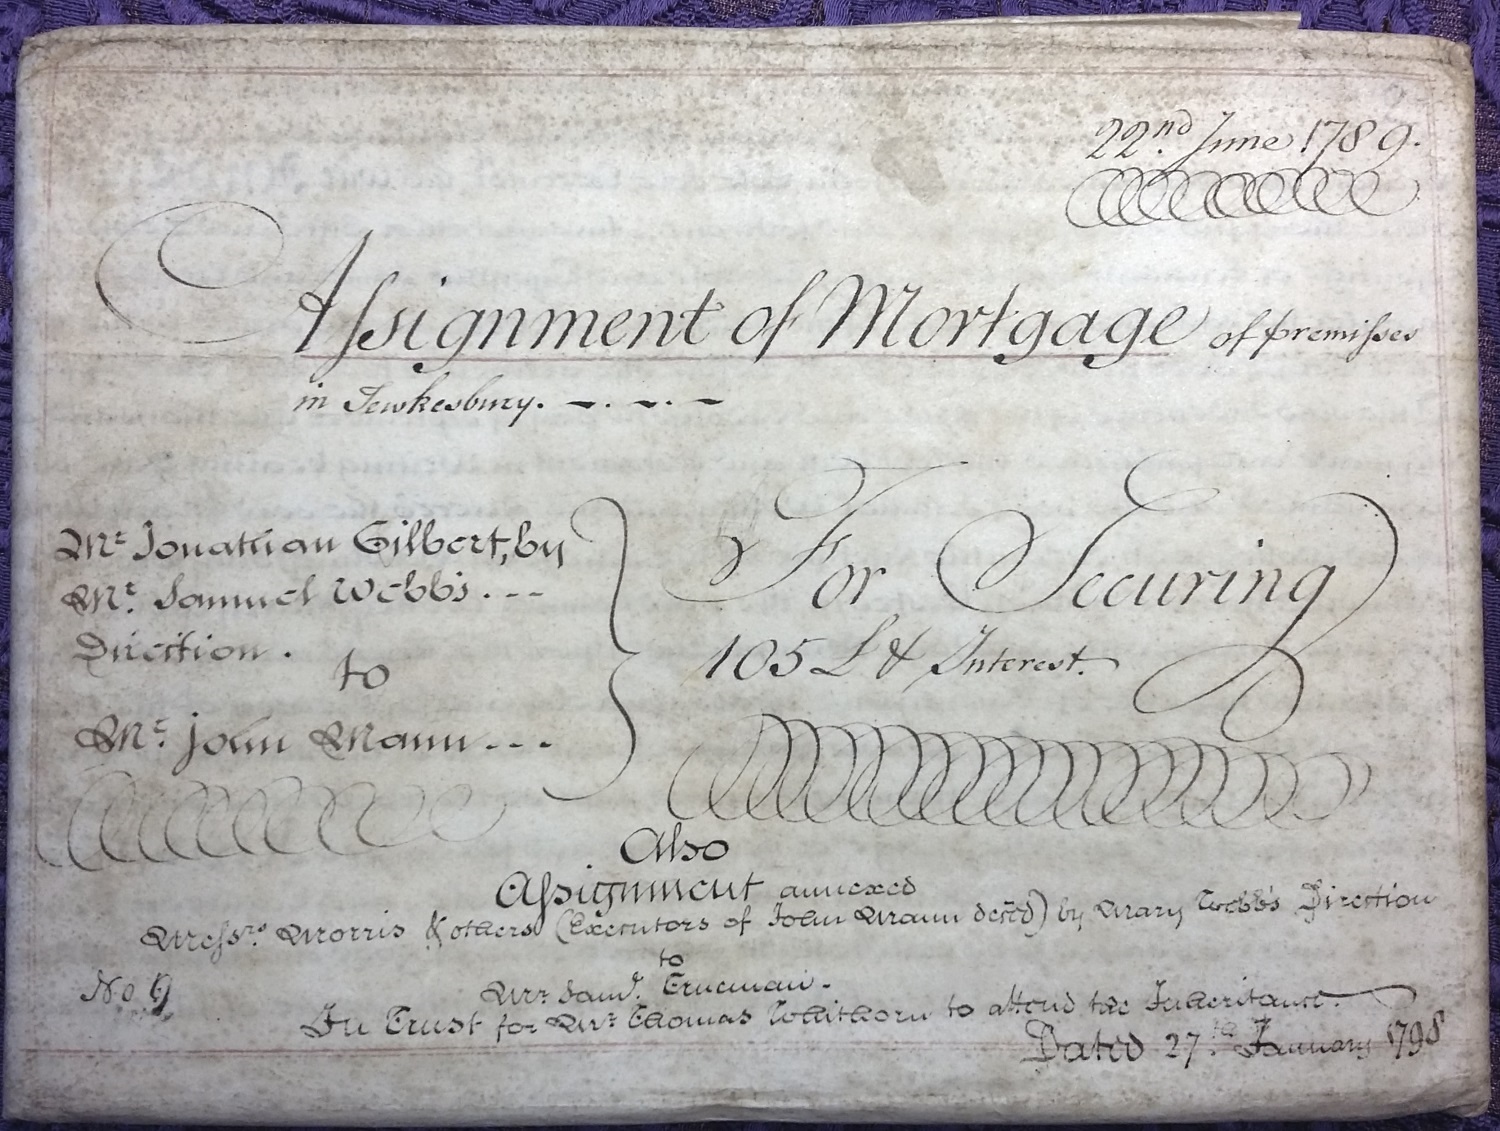 22nd. June 1789.
Assignment of Mortgage of premisses
in Tewkesbury.
Mr. Jonathan Gilbert, by
Mr. Samuel Webb's
Direction.
to
Mr. John Mann
For Securing
105 £ & Interest.
Also
Assignment annexed
Messrs. Morris & others (Executors of John Mann deced) by Mary Webb's Direction
to
Mr. Saml. Trueman.
In Trust for Mr. Thomas Whithorn to attend the Inheritance.
No 9
Dated 27th. January 1798